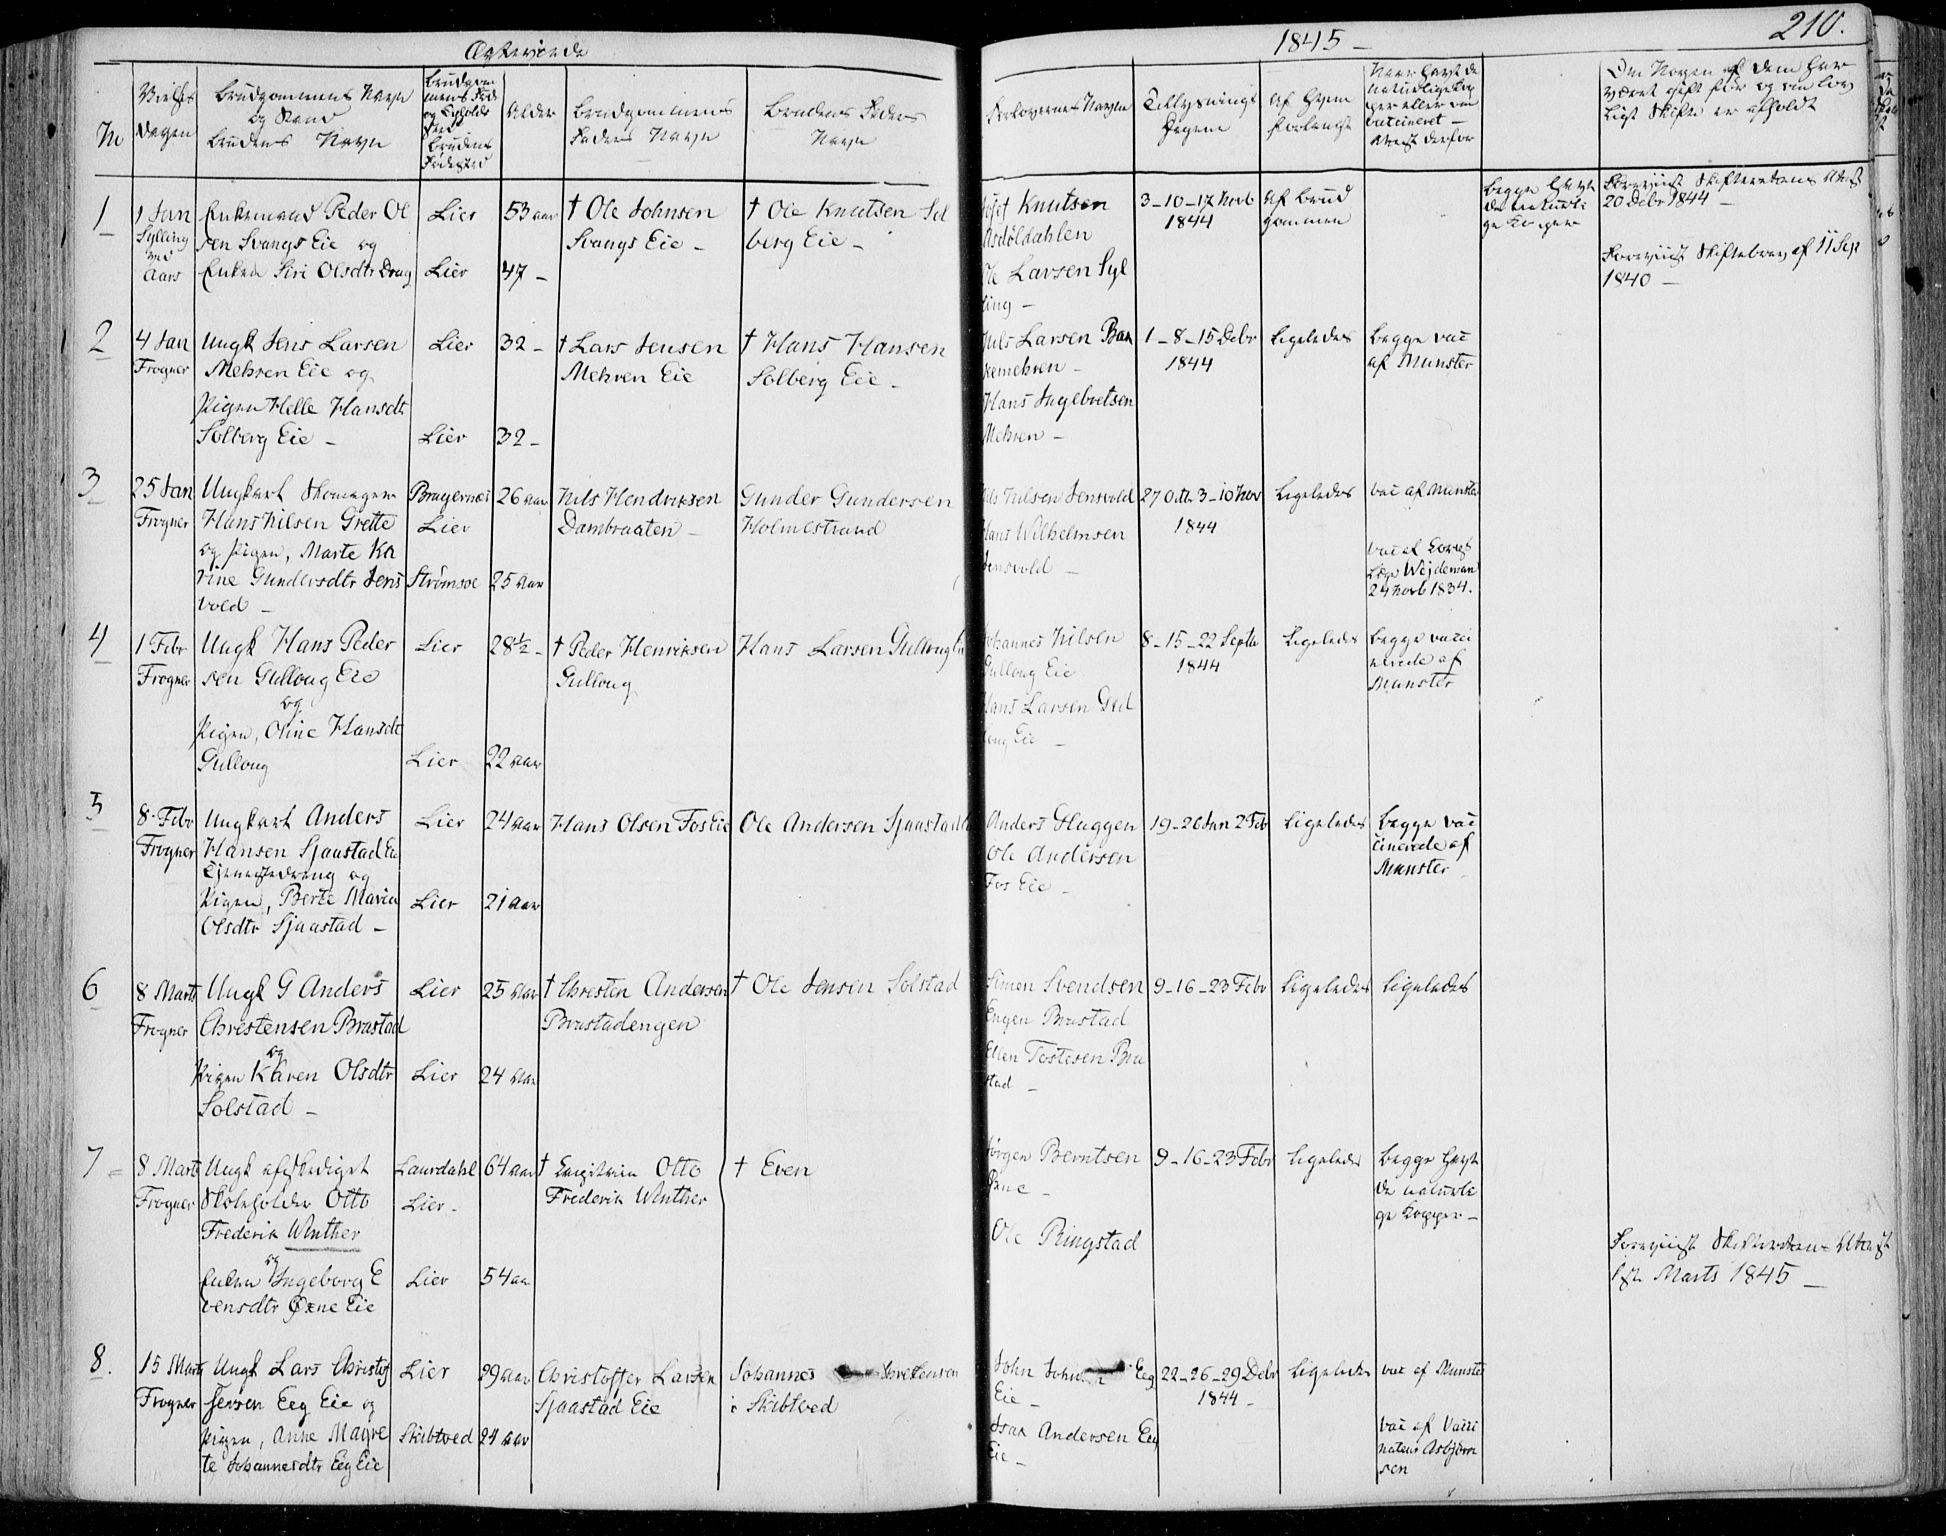 210.
Copulerede
1845 –
No
Vielses Dagen
Brudgommens Navn
og Stand
Brudens Navn
Alder
Brudgommens
Faders Navn
Brudens Faders
Navn
Forlovernes Navne
Tillysnings
Dagene
Af hvem
forlangt
1
1 Jan
Sylling
Enkemand Peder Ol
sen Svangs Eie og
Enken Siri Olsdtr Drag
Lier
Lier
53 aar
47 –
† Ole Johnsen
Svangs Eie –
† Ole Knutsen Sol
berg Eie –
Knutsen
Asdøldahlen
Ole Larsen Syl
ling –
3–10–17 Novb
1844
af Brud
gommen
Begge havt
de naturli
ge Kopper
Foreviist Skifterettens Attest
20 Debr 1844 –
Foreviist Skiftebrev af 11 Sep
1840 –
2
4 Jan
Frogner
Ungk Jens Larsen
Mehren Eie og
Pigen Helle Hansdt
Solberg Eie –
Lier
Lier
32 –
32 –
† Lars Jensen
Mehren Eie
† Hans Hansen
Solberg Eie –
Nils Larsen Bak
kemehren –
Hans Ingebretsen
Mehren –
1–8–15 Debr
1844
Ligeledes
Begge vac
af Munster
3
25 Jan
Frogner
Ungkarl Skomager
Hans Nilsen Grette
og Pigen, Marte Ka
rine Gundersdtr Jens
vold –
Bragernæs
Lier
Strømsoe
26 aar
25 aar
Nils Hendriksen
Dambraaten –
Gunder Gundersen
Holmestrand
Nils Nilsen Jensvold
Hans Wilhelmsen
Jensvold –
27 Octb 3–10 Nov
1844
Ligeledes
vac af Munster
vac af
Wejdeman
24 Novb 1834.
4
1 Febr
Frogner
Ungk Hans Peder
sen Gulloug Eie
og
Pigen, Oline Hansdt
Gulloug
Lier
Lier
28½ –
22 aar
† Peder Henriksen
Gulloug
Hans Larsen Gulloug Eie
Johannes Nilsen
Gulloug Eie
Hans Larsen Gul
loug Eie –
8–15–22 Septb
1844
Ligeledes
Begge vacci
nerede af
Munster
5
8 Febr
Frogner
Ungkarl Anders
Hansen Sjaastad Eie
Tjenestedreng og
Pigen, Berte Maria
Olsdtr Sjaastad –
Lier
Lier
24 aar
21 aar
Hans Olsen Fos Eie
Ole Andersen Sjaastad
Anders Haggen
Ole Andersen
Fos Eie –
19–26 Jan 2 Feb
Ligeledes
Begge vac
cinerede af
Munster
6
8 Marts
Frogner
Ungk G Anders
Christensen Brastad
og
Pigen Karen Olsdtr
Solstad –
Lier
Lier
25 aar
24 aar
† Christen Andersen
Brastadengen
† Ole Jensen Solstad
Simen Svendsen
Engen Brastad
Ellen Tostesen Bra
stad –
9–16–23 Febr
Ligeledes
Ligeledes
7
8 Marts
Frogner
Ungk afskediget
Skoleholder Otto
Frederik Winther
og
Enken Ingeborg E
vensdtr Øxne Eie
Laurdahl
Lier –
Lier
64 aar
54 aar
† Capitain Otto
Frederik Winther
† Even
Jørgen Berntsen
Øxne –
Ole Ringstad
9–16–23 Febr
Ligeledes
Begge havt
de naturli
ge Kopper –
Foreviist Skifteretten Attest
1ste Marts 1845 –
8.
15 Marts
Frogner
Ungk Lars Christof
fersen Eeg Eie og
Pigen, Anne Magre
te Johannesdtr Eeg Eie
Lier
Skibtved
29 aar
24 aar
Christoffer Larsen
Sjaastad Eie
Johannes
i Skibtved
John
Eeg
Eie –
Isak Andersen Eeg
Eie –
22–26–29 Debr
1844 –
Ligeledes
vac af Munster
vac af Vacci
nateur Asbjørn
sen